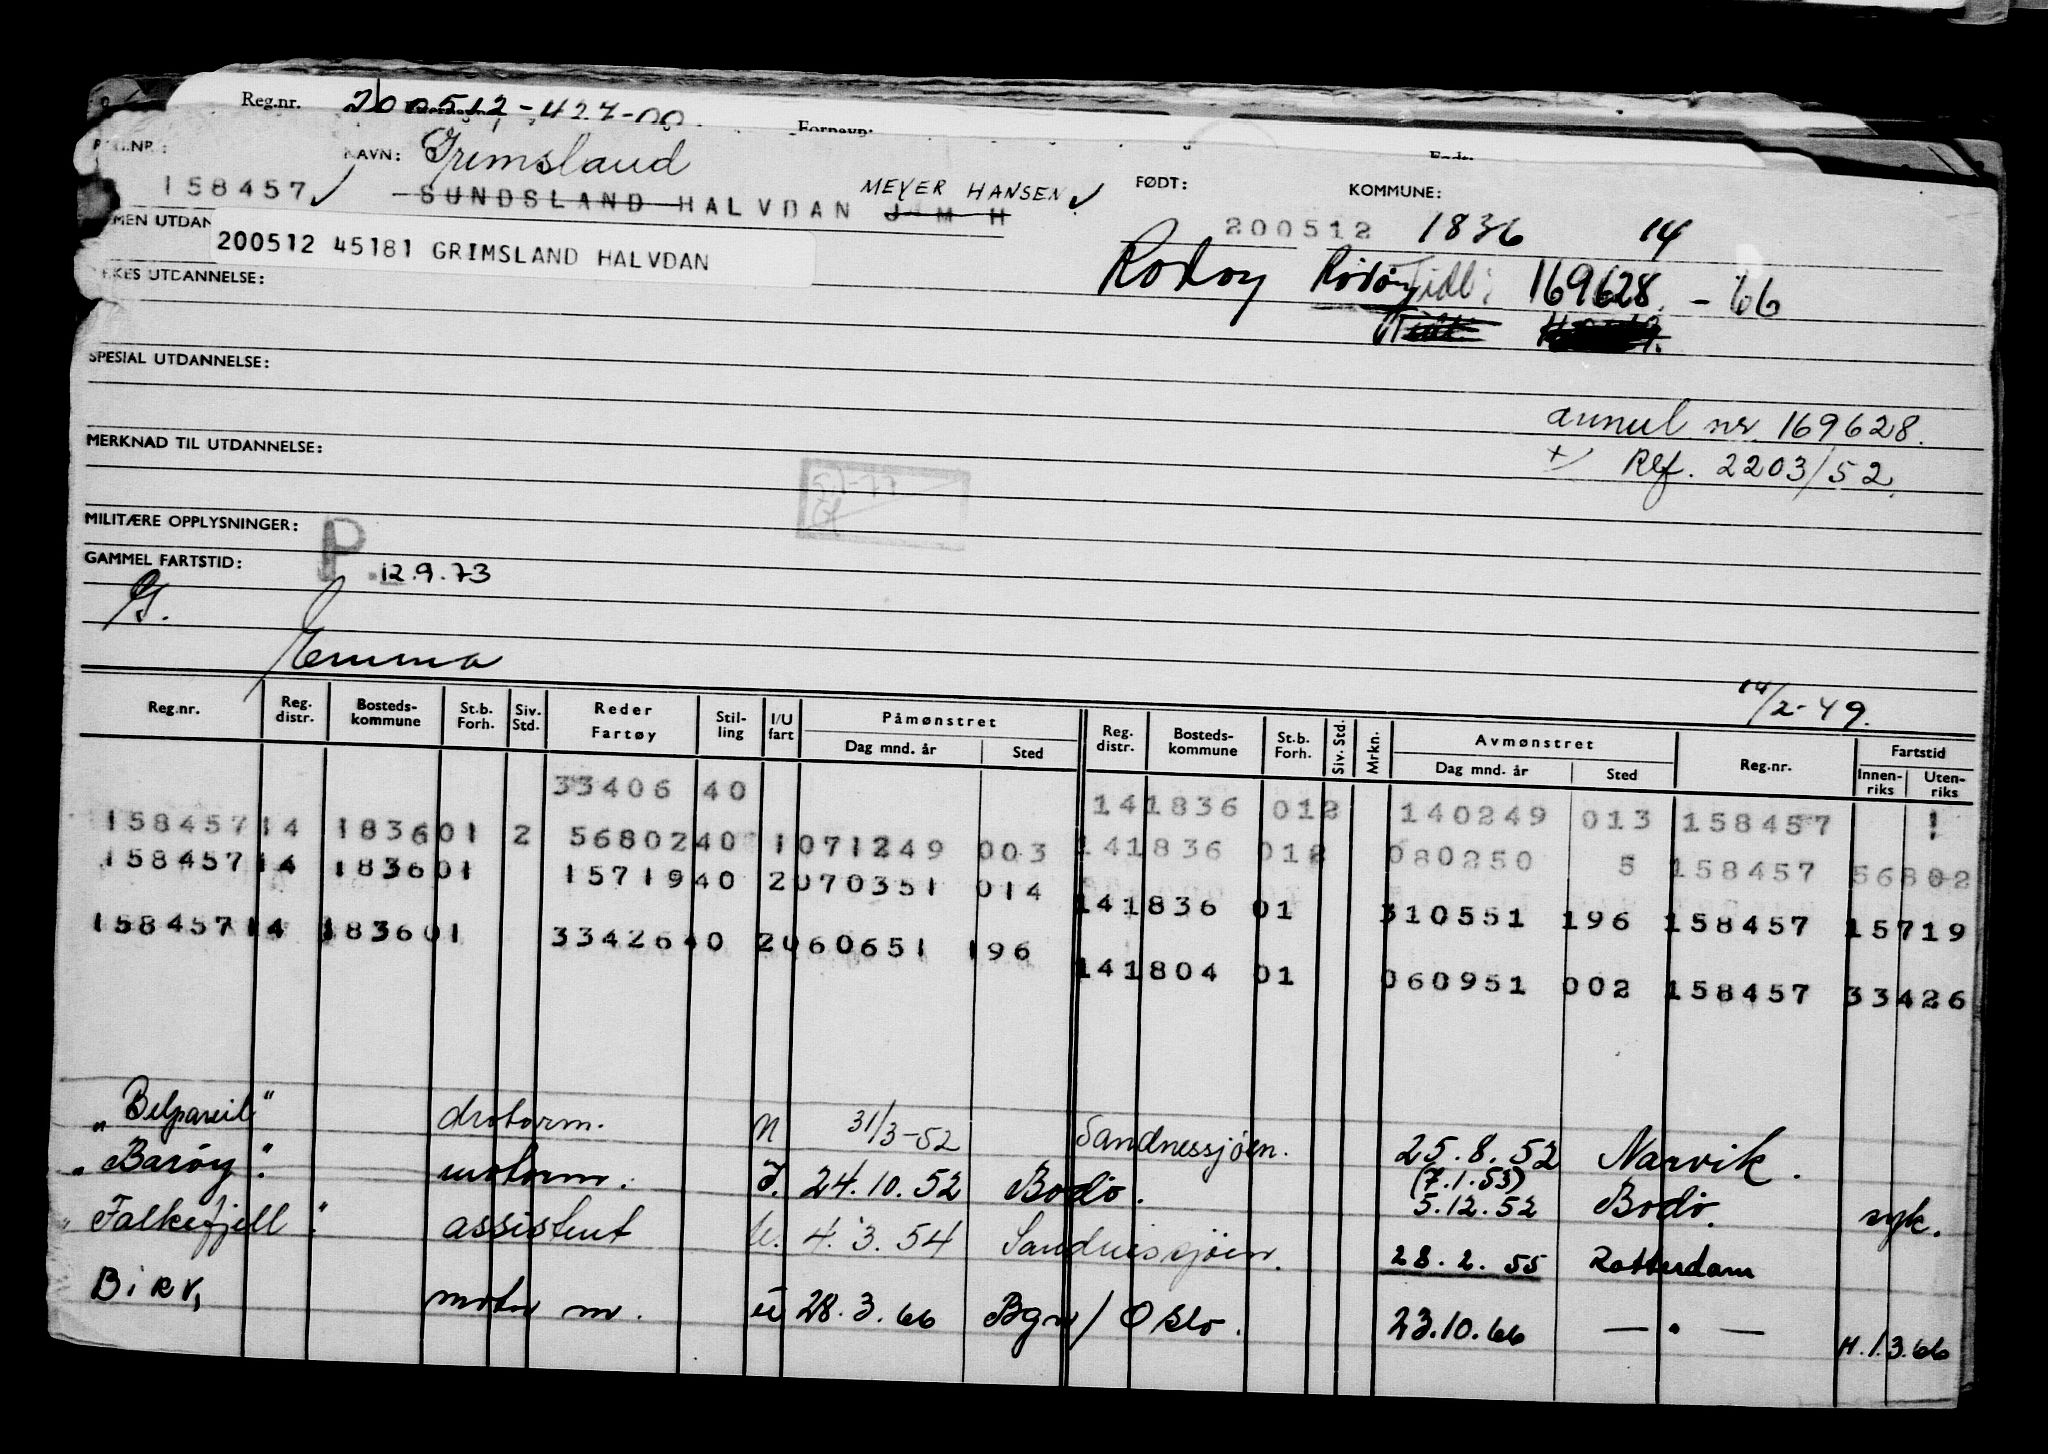 Reg.nr. 200512-427-00
Fornavn:
NAVN: Grimsland
158457 SUNDSLAND HALVDAN J M H MEYER HANSEN
FØDT: KOMMUNE:
200512 1836 14
200512 45181 GRIMSLAND HALVDAN
Rødøy Rødøy Tidl: 169628 - 66
UTDANNELSE:
SPESIAL UTDANNELSE:
annul nr 169628.
MERKNAD TIL UTDANNELSE:
Ref. 2203/52.
MILITÆRE OPPLYSNINGER:
GAMMEL FARTSTID: P. 12.9.73
G.
Emma
14/2-49.
Reg.nr. Reg. distr. Bosteds-kommune St.b. Forh. Siv. Std. Reder Fartøy Stil-ling I/U fart Påmønstret Dag mnd. år Sted Reg. distr. Bosteds-kommune St.b. Forh. Siv. Std. Mrkn. Avmønstret Dag mnd. år Sted Reg.nr. Fartstid Innen-riks Uten-riks
33406 40 141836 012 140249 013 158457 !
158457 14 1836 01 2 56802 40 1 071249 003 141836 012 080250 5 158457 56802
158457 14 1836 01 15719 40 2 070351 014 141836 01 310551 196 158457 15719
158457 14 1836 01 33426 40 2 060651 196 141804 01 060951 002 158457 33426
"Belpareil" motorm. U 31/3-52 Sandnessjøen. 25.8.52 Narvik.
"Barøy". motorm. I. 24.10.52 Bodø. (7.1.53) 5.12.52 Bodø. syk.
"Falkefjell". assistent U. 4.3.54 Sandnessjøen. 28.2.55 Rotterdam
Birk, motor m. U 28.3.66 Bgn/Oslo. 23.10.66 — " — H.1.3.66